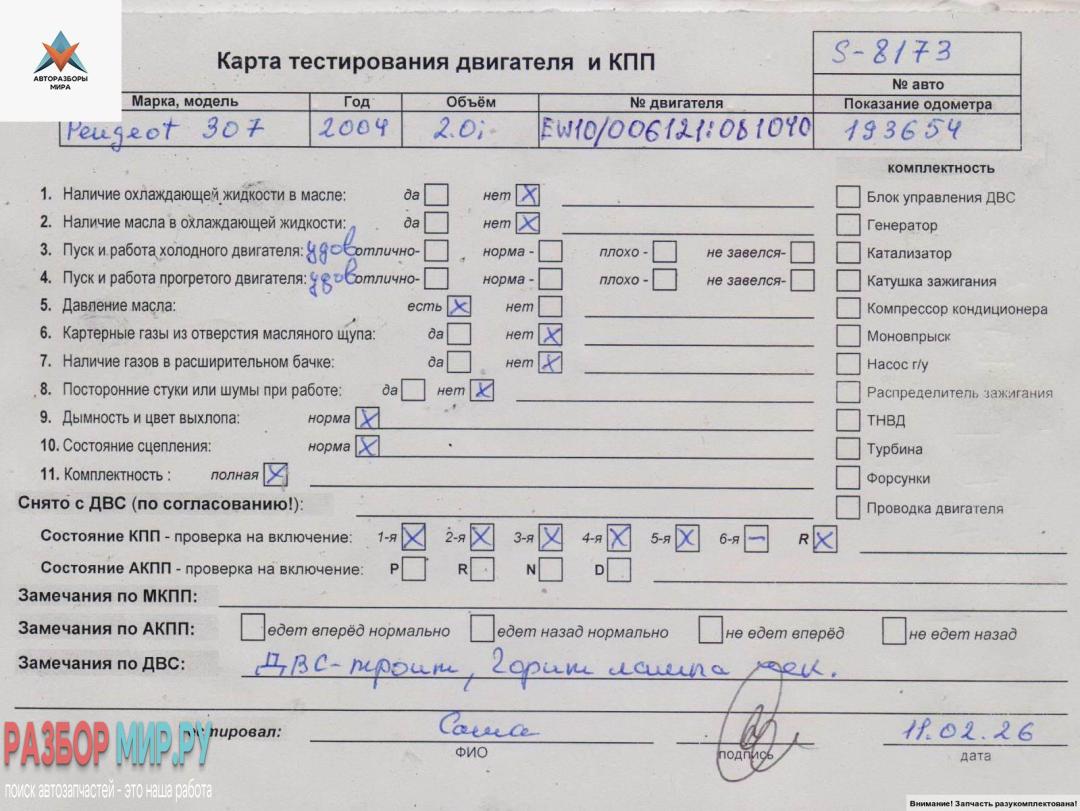 АВТОРАЗБОРЫ
МИРА
Карта тестирования двигателя и КПП
S-8173
№ авто
Марка, модель Год Объём № двигателя Показание одометра
Peugeot 307 2004 2.0i EW10/006121:081040 193654
комплектность
1. Наличие охлаждающей жидкости в масле: да нет X
Блок управления ДВС
2. Наличие масла в охлаждающей жидкости: да нет X
Генератор
3. Пуск и работа холодного двигателя: удов отлично- норма - плохо - не завелся-
Катализатор
4. Пуск и работа прогретого двигателя: удов отлично- норма - плохо - не завелся-
Катушка зажигания
5. Давление масла: есть X нет
Компрессор кондиционера
6. Картерные газы из отверстия масляного щупа: да нет X
Моновпрыск
7. Наличие газов в расширительном бачке: да нет X
Насос г/у
8. Посторонние стуки или шумы при работе: да нет X
Распределитель зажигания
9. Дымность и цвет выхлопа: норма X
ТНВД
10. Состояние сцепления: норма X
Турбина
11. Комплектность : полная X
Форсунки
Снято с ДВС (по согласованию!):
Проводка двигателя
Состояние КПП - проверка на включение: 1-я X 2-я X 3-я X 4-я X 5-я X 6-я — R X
Состояние АКПП - проверка на включение: P R N D
Замечания по МКПП:
Замечания по АКПП: едет вперёд нормально едет назад нормально не едет вперёд не едет назад
Замечания по ДВС: ДВС-троит, Горит лампа чек.
тировал: Саша 11.02.26
ФИО подпись дата
РАЗБОР МИР.РУ
поиск автозапчастей - это наша работа
Внимание! Запчасть разукомплектована!